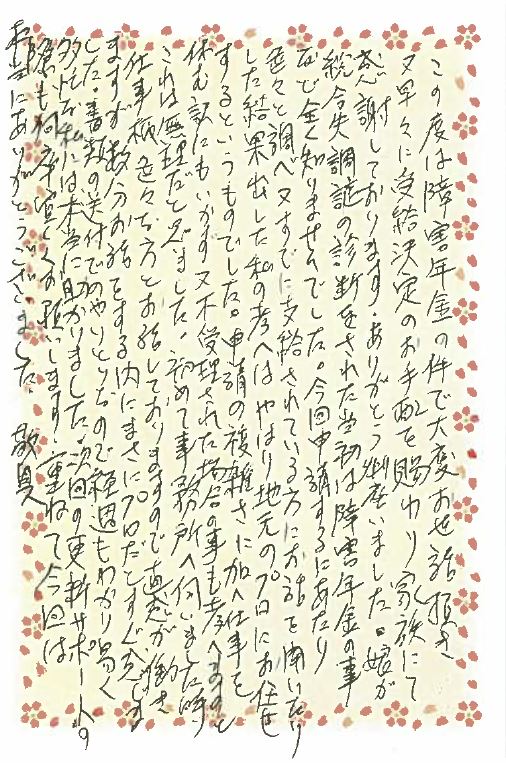 この度は障害年金の件で大変お世話頂き
又早々に受給決定のお手配を賜わり家族にて
感謝しております。ありがとう御座いました。娘が
総合失調症の診断をされた当初は障害年金の事
など全く知りませんでした。今回申請するにあたり
色々と調べ又すでに支給されている方にお話を聞いたり
した結果出した私の考へはやはり地元のプロにお任せ
するというものでした。申請の複雑さに加へ仕事を
休む訳にもいかず又不受理された場合の事も考へますと
これは無理だと思いました。初めて事務所へ伺いました時
仕事柄色々な方とお話しておりますので直感が働き
ますが数分お話をする内にまさにプロだとすぐ感じま
した。書類の送付でのやりとりなので経過もわかり易く
多忙な私には本当に助かりました。次回の更新サポートの
際も何卒宜しくお願いします。重ねて今回は
お世話にありがとうございました。敬具